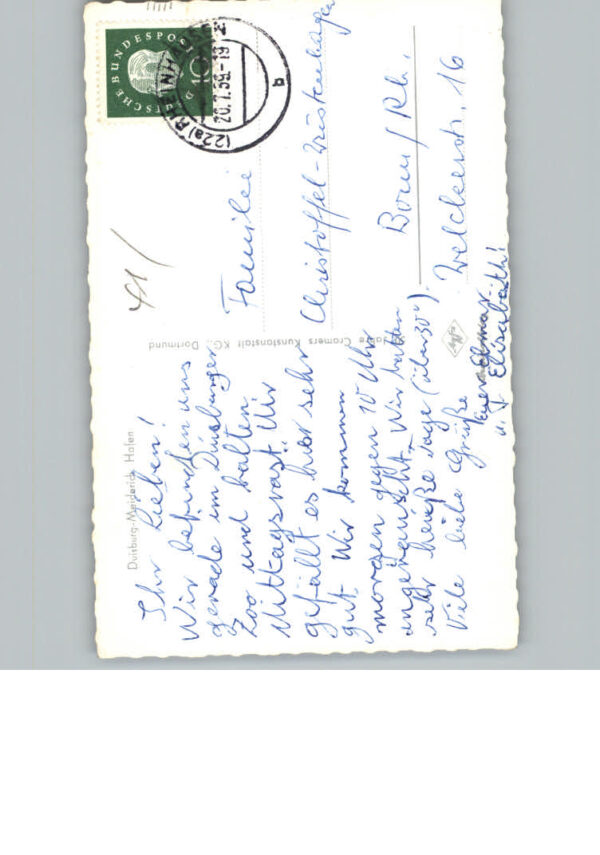 Duisburg-Meiderich Hafen
Ihr Lieben!
Wir befinden uns
gerade im Duisburger
Zoo und halten
Mittagsrast. Mir
gefällt es hier sehr
gut. Wir kommen
morgen gegen 10 Uhr
angerauscht. Wir hatten
sehr heiße Tage (über 30°).
Viele liebe Grüße
Elmar
u. Elisabeth!
Cramers Kunstanstalt KG., Dortmund
DEUTSCHE BUNDESPOST
10
(22a) RHEINHAUSEN 2
20.7.59.-19
b
Familie
Christoffel-Wüstenhagen
Bonn/Rh.
Welckerstr. 16